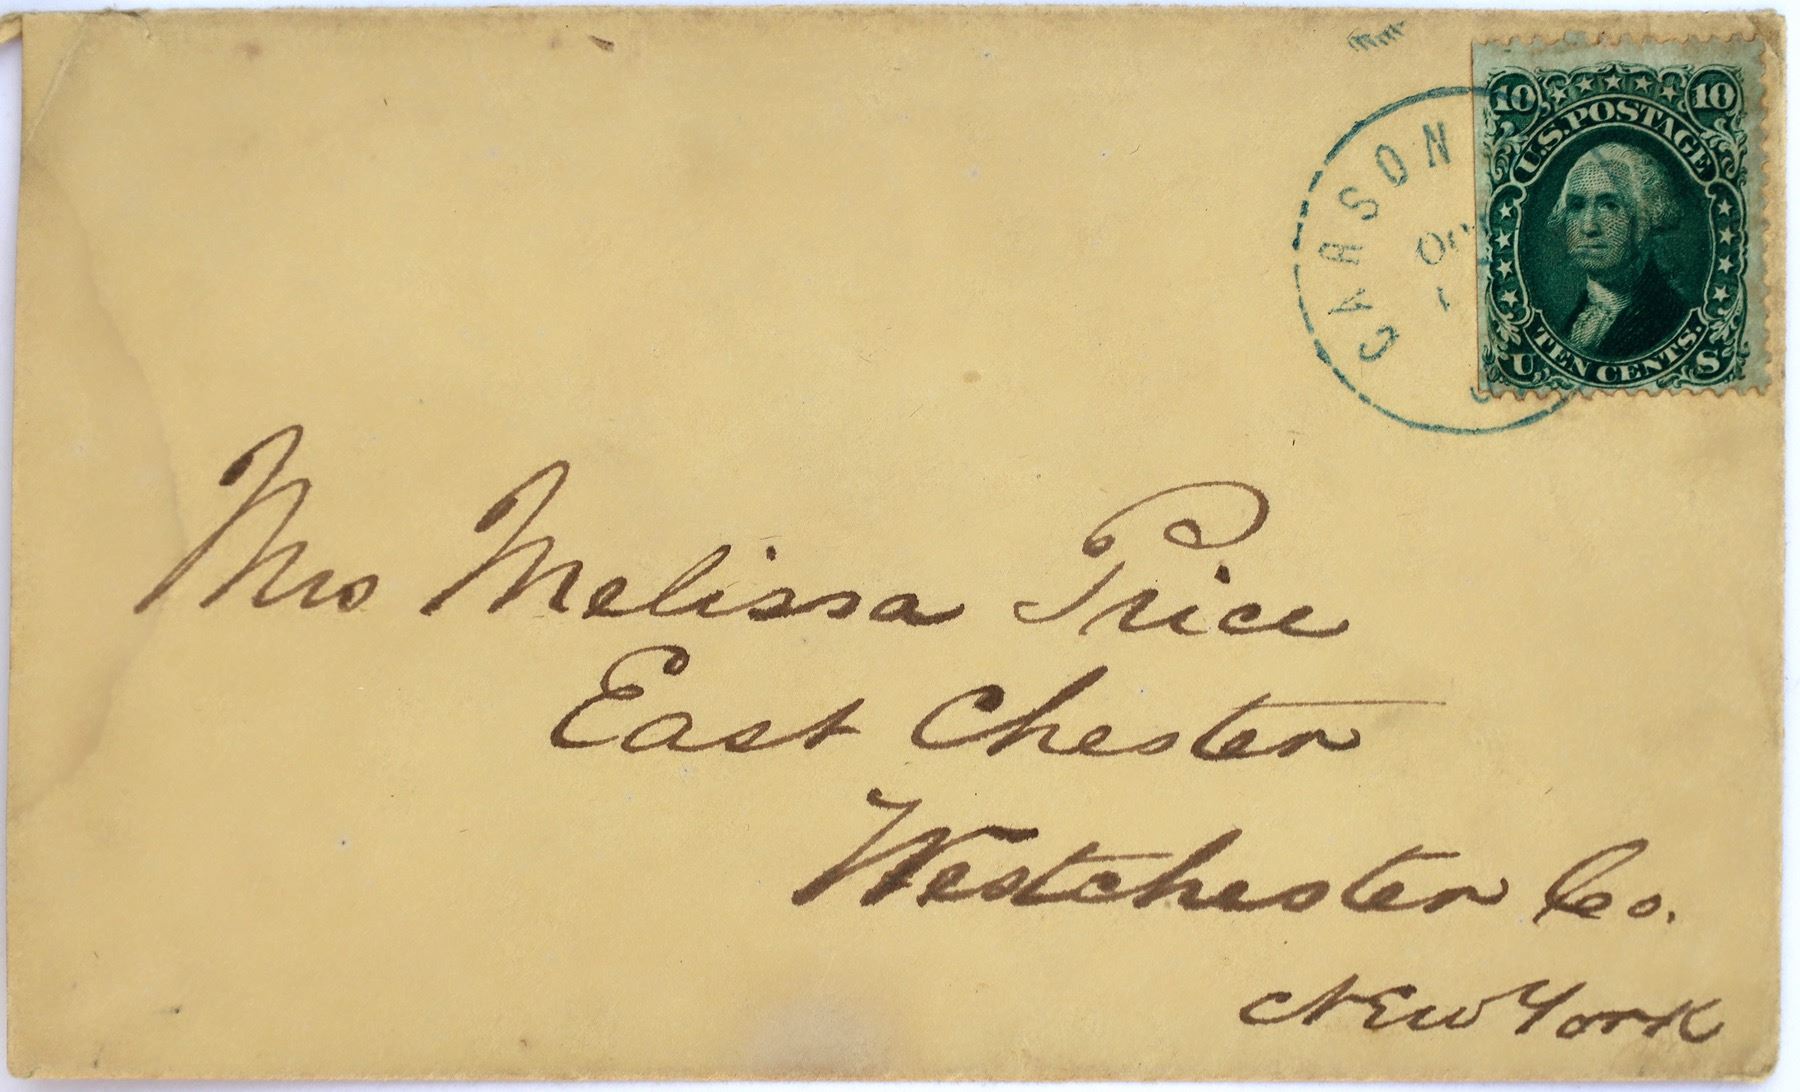 CARSON
10 10
U.S. POSTAGE
TEN CENTS.
U S
Mrs Melissa Price
East Chester
Westchester Co.
New York